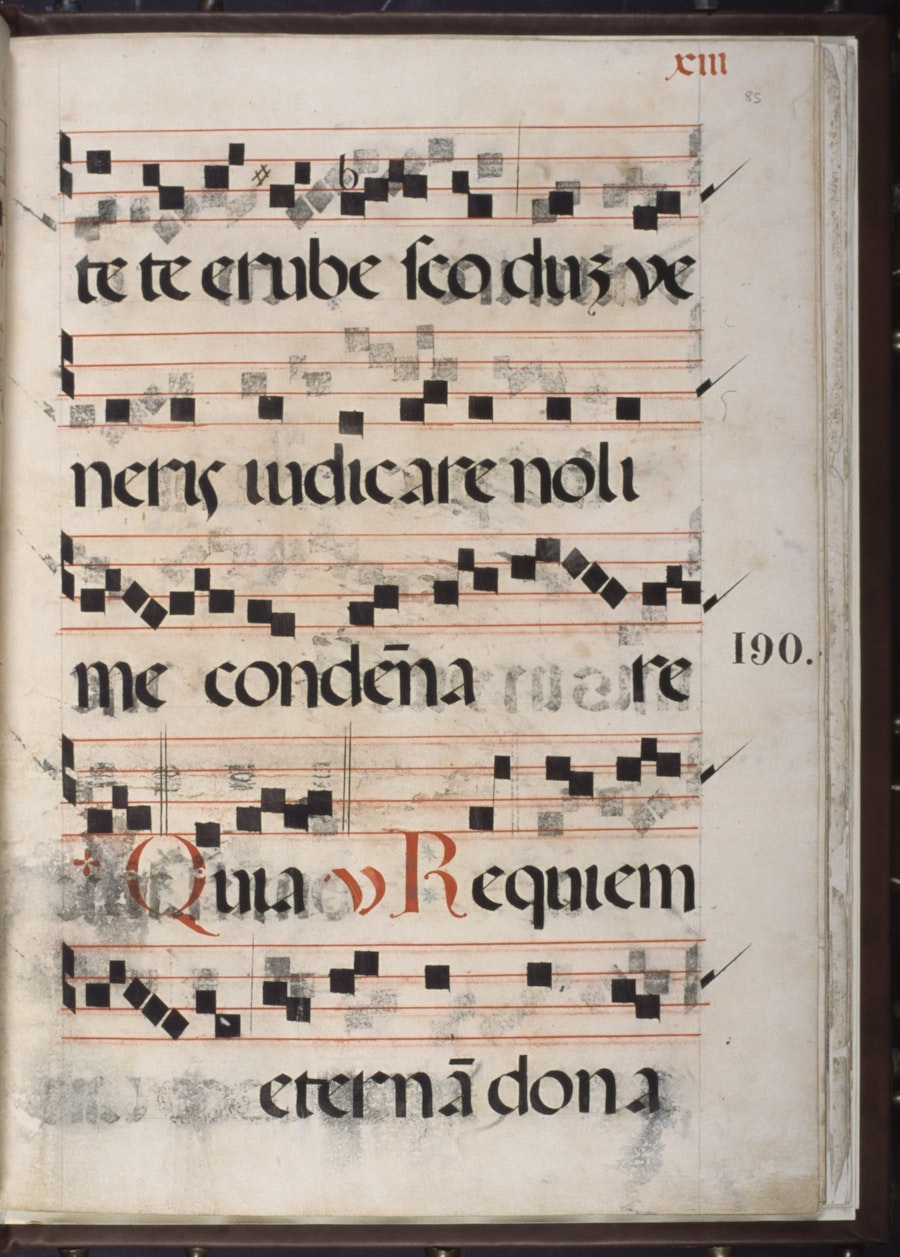 xiii
85
te te erube sco duʒ ve
neris iudicare noli
me condēna re
190.
Quia v Requiem
eternā dona